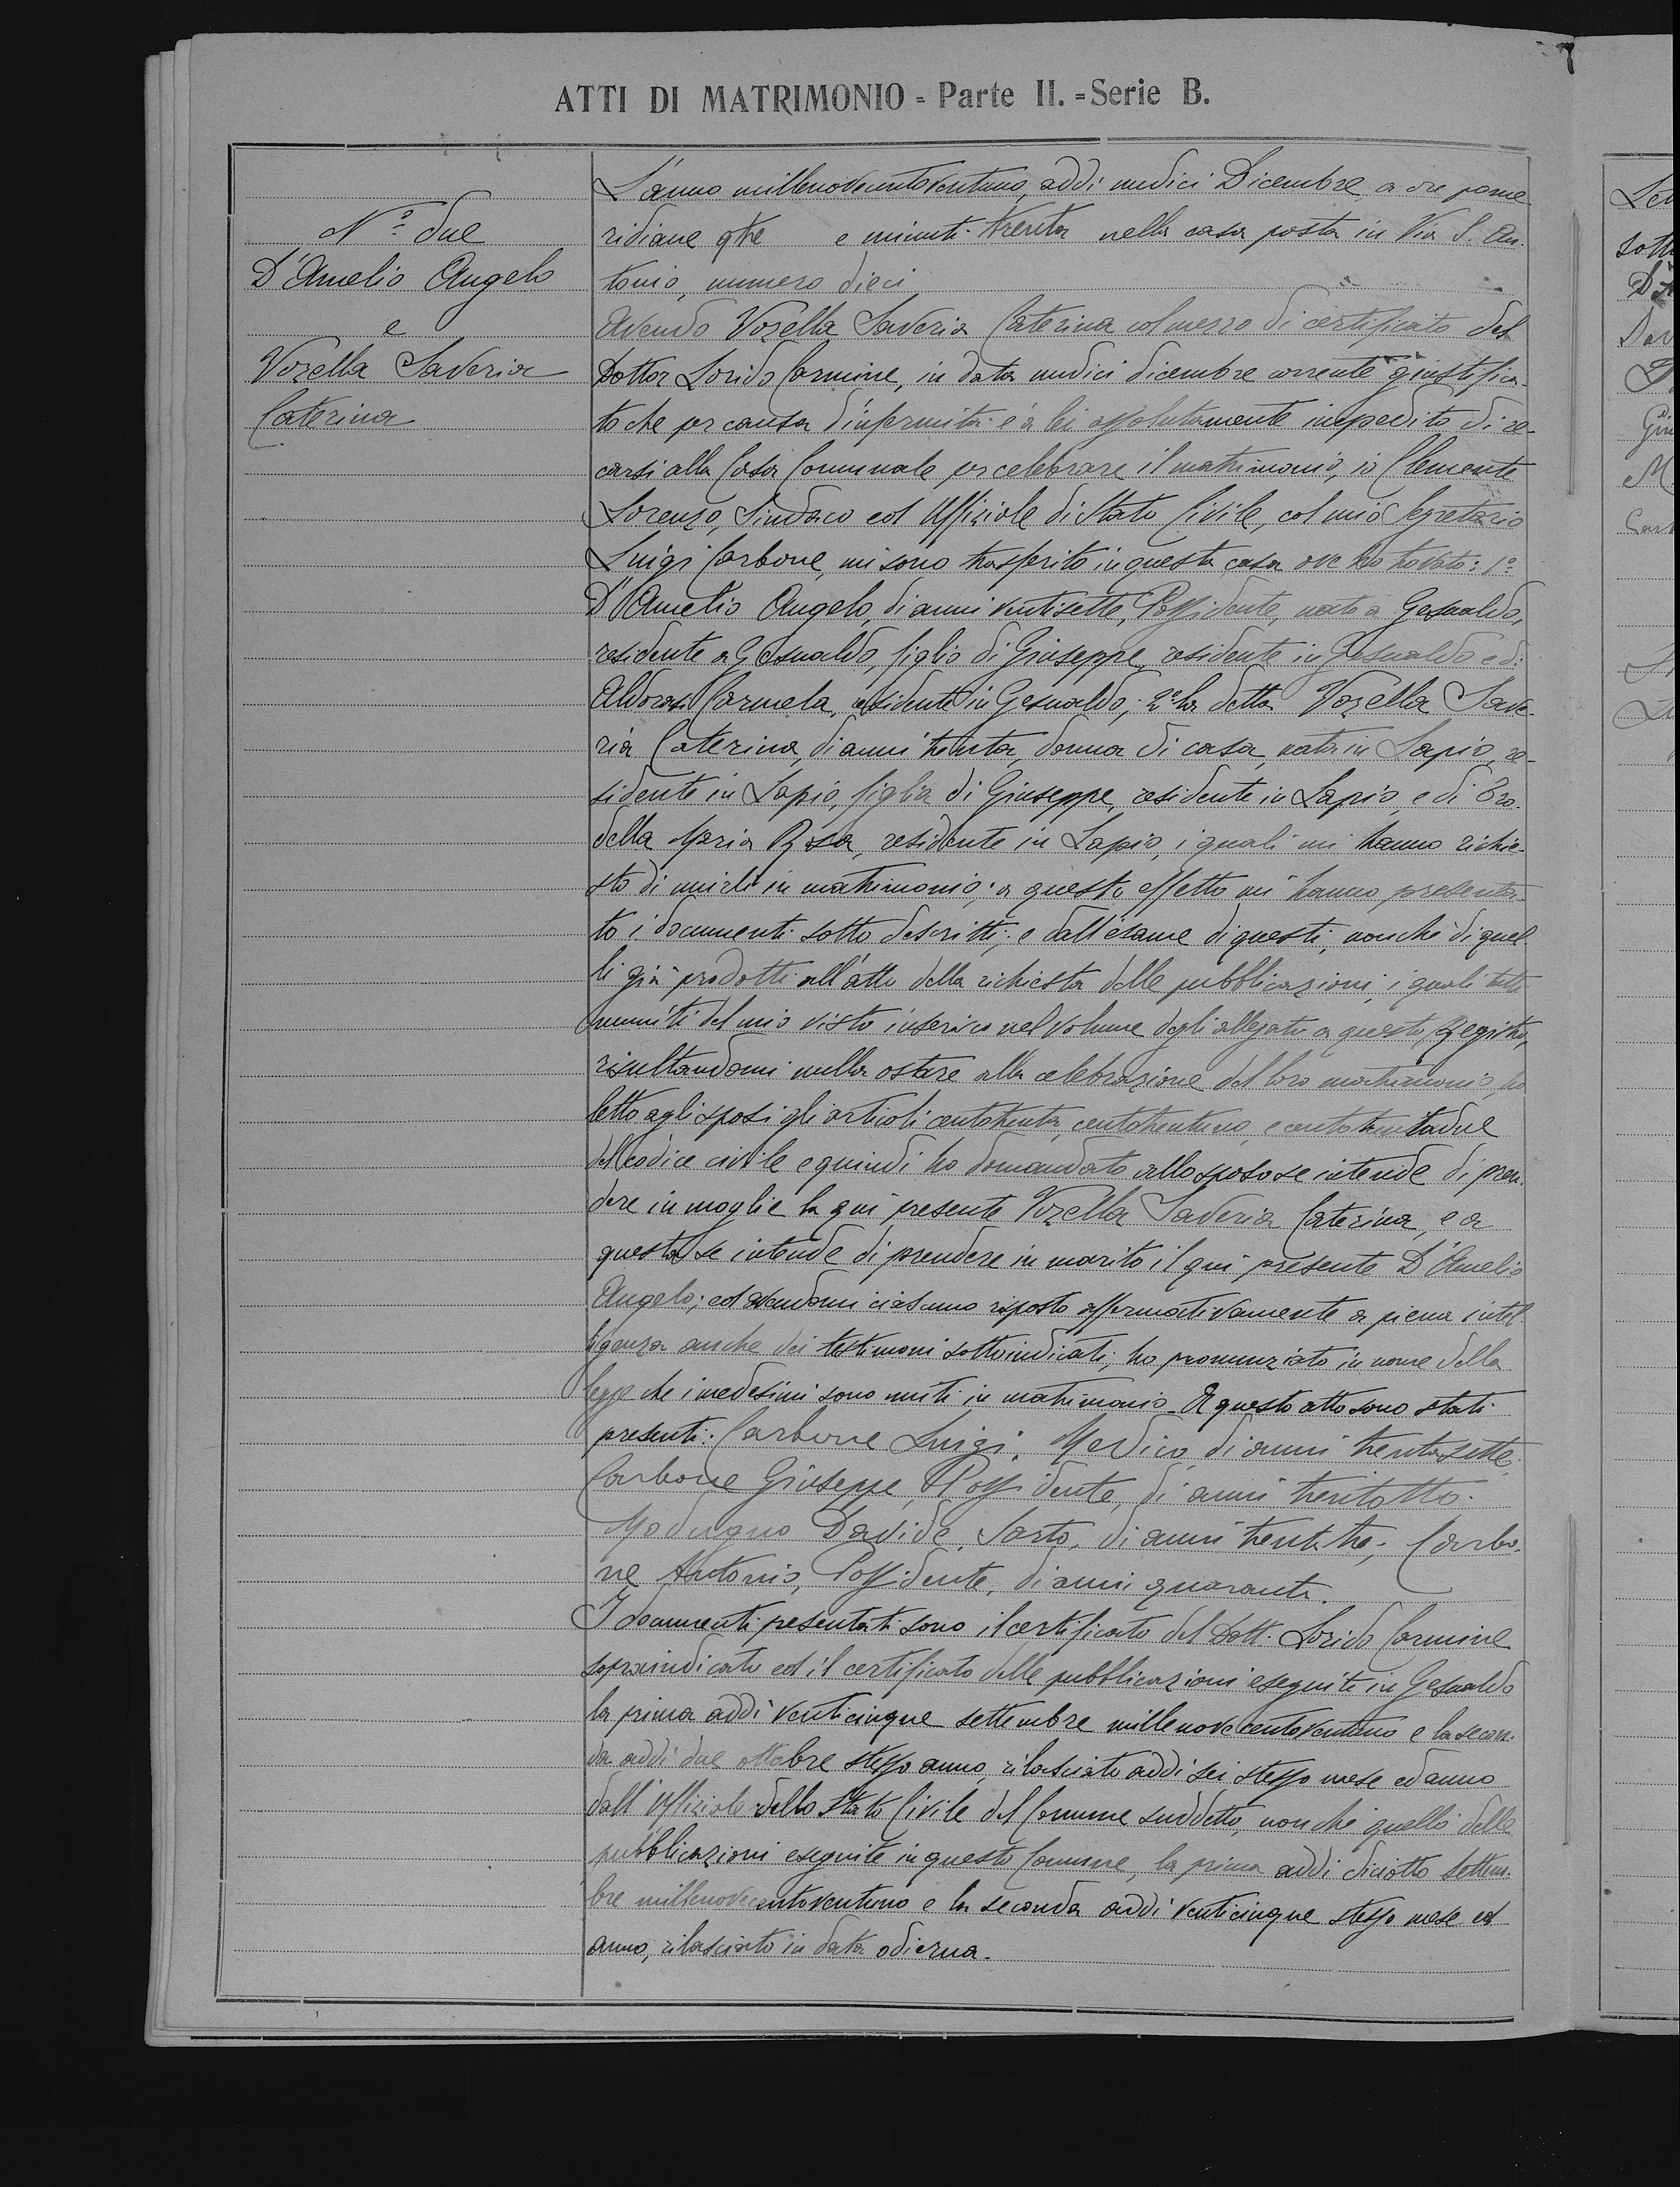 ATTI DI MATRIMONIO - Parte II. - Serie B.
N.º due
D'Amelio Angelo
e
Vozella Saveria
Caterina
L'anno millenovecentoventuno, addì undici Dicembre, a ore pome-
ridiane e minuti trenta nella casa posta in Via S. An-
tonio, numero dieci
Avendo Vozella Saveria Caterina col mezzo di certificato del
Dottor Lorido Carmine, in data undici dicembre corrente giustifica-
to che per causa d'infermità è a lei assolutamente impedito di re-
carsi alla Casa Comunale per celebrare il matrimonio, io Clemente
Lorenzo, Sindaco ed Uffiziale di Stato Civile, col mio Segretario
Luigi Carbone, mi sono trasferito in questa casa ove ho trovato: 1º
D'Amelio Angelo, di anni ventisette, Possidente, nato a Gesualdo,
residente a Gesualdo, figlio di Giuseppe, residente in Gesualdo e di
Aldorasi Carmela, residente in Gesualdo; 2º la detta Vozella Save-
ria Caterina, di anni trenta, donna di casa, nata in Lapio, re-
sidente in Lapio, figlia di Giuseppe, residente in Lapio, e di Bro-
della Maria Rosa, residente in Lapio, i quali mi hanno richie-
sto di unirli in matrimonio; a questo effetto mi hanno presenta-
to i documenti sotto descritti; e dall'esame di questi, nonchè di quel-
li già prodotti all'atto della richiesta delle pubblicazioni, i quali tutti
muniti del mio visto inserisco nel volume degli allegati a questo Registro,
risultandomi nulla ostare alla celebrazione del loro matrimonio, ho
letto agli sposi gli articoli centotrenta, centotrentuno, e centotrentadue
del codice civile e quindi ho domandato allo sposo se intende di pren-
dere in moglie la qui presente Vozella Saveria Caterina, e a
questa se intende di prendere in marito il qui presente D'Amelio
Angelo; ed avendomi ciascuno risposto affermativamente a piena intel-
ligenza anche dei testimoni sottoindicati, ho pronunziato in nome della
legge che i medesimi sono uniti in matrimonio. A questo atto sono stati
presenti: Carbone Luigi, Medico, di anni trentasette,
Carbone Giuseppe, Possidente, di anni trentotto.
Modugno Davide, Sarto, di anni trentatre; Carbo-
ne Antonio, Possidente, di anni quaranta.
I documenti presentati sono il certificato del Dott. Lorido Carmine
sopraindicato ed il certificato delle pubblicazioni eseguite in Gesualdo
la prima addì venticinque settembre millenovecentoventuno e la secon-
da addì due ottobre stesso anno, rilasciato addì sei stesso mese ed anno
dall'Uffiziale dello Stato Civile del Comune suddetto, nonchè quello delle
pubblicazioni eseguite in questo Comune, la prima addì diciotto settem-
bre millenovecentoventuno e la seconda addì venticinque stesso mese ed
anno, rilasciato in data odierna.